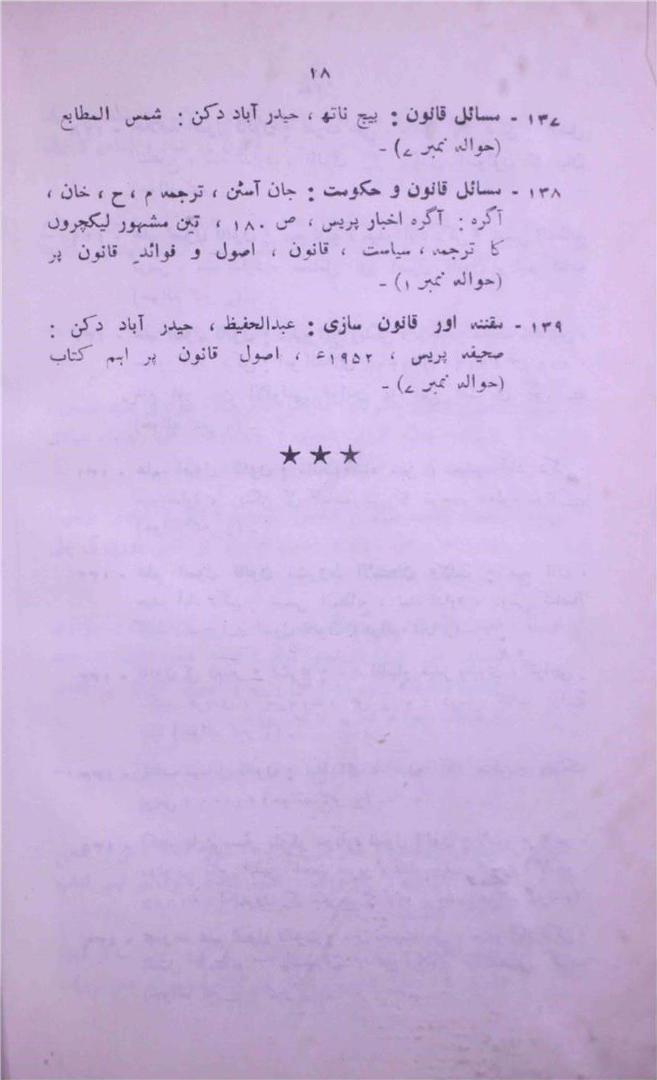 ۲۸
۱۳۷ - مسائل قانون : بیچ ناتھ ، حیدر آباد دکن : شمس المطابع
(حوالہ نمبر ۷) -
۱۳۸ - مسائل قانون و حکومت : جان آسٹن ، ترجمہ م ، ح ، خان ،
آگرہ : آگرہ اخبار پریس ، ص ۱۸۰ ، تین مشہور لیکچروں
کا ترجمہ ، سیاست ، قانون ، اصول و فوائد قانون پر
(حوالہ نمبر ۱) -
۱۳۹ - مقننہ اور قانون سازی : عبدالحفیظ ، حیدر آباد دکن :
صحیفہ پریس ، ۱۹۵۲ء ، اصول قانون پر اہم کتاب
(حوالہ نمبر ۷) -